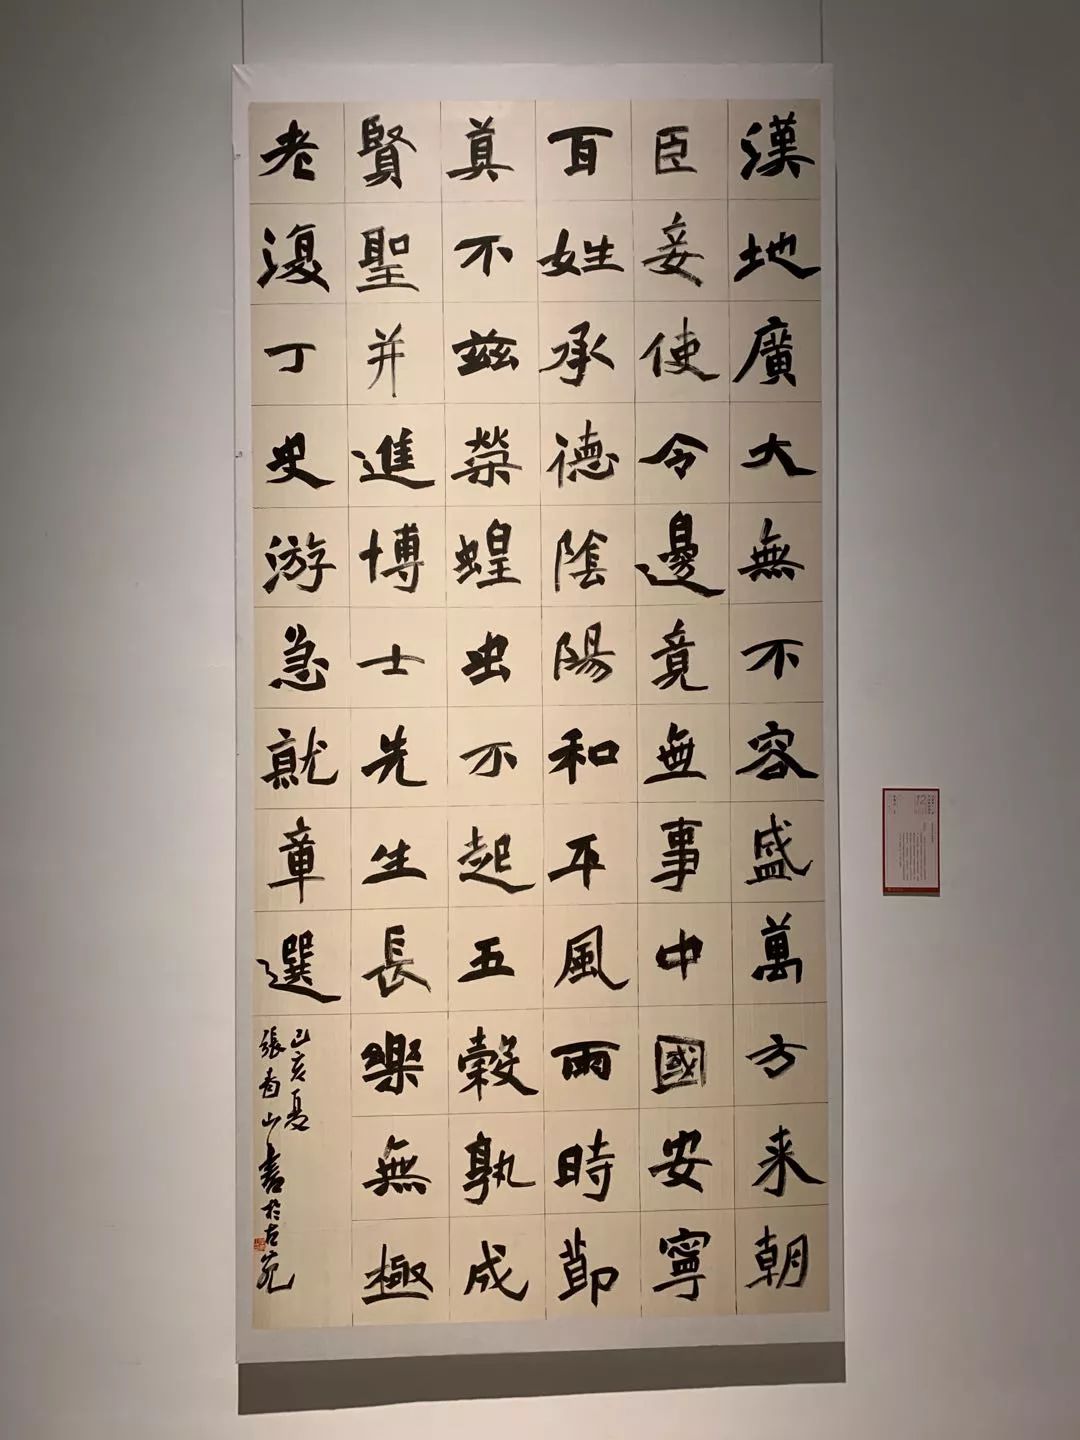 漢地廣大無不容盛萬方来朝
臣妾使令邊竟無事中國安寧
百姓承德陰陽和平風雨時節
莫不兹榮蝗虫不起五穀孰成
賢聖并進博士先生長樂無極
老復丁史游急就章選
己亥夏
張山書於古宛